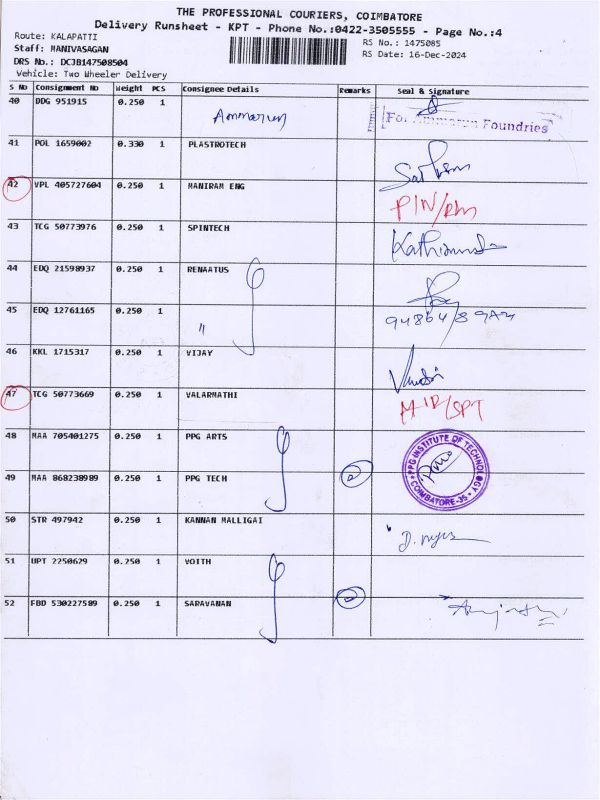 THE PROFESSIONAL COURIERS, COIMBATORE
Delivery Runsheet - KPT - Phone No.:0422-3505555 - Page No.:4
Route: KALAPATTI
RS No.: 1475085
Staff: MANIVASAGAN
RS Date: 16-Dec-2024
DRS No.: DCJB147508504
Vehicle: Two Wheeler Delivery
S No Consignment No Weight PCS Consignee Details Remarks Seal & Signature
40 DDG 951915 0.250 1 Ammarun
For Ammarun Foundries
41 POL 1659002 0.330 1 PLASTROTECH
42 VPL 405727604 0.250 1 MANIRAM ENG
43 TCG 50773976 0.250 1 SPINTECH
44 EDQ 21598937 0.250 1 RENAATUS
45 EDQ 12761165 0.250 1 "
46 KKL 1715317 0.250 1 VIJAY
47 TCG 50773669 0.250 1 VALARMATHI
48 MAA 705401275 0.250 1 PPG ARTS
PPG INSTITUTE OF TECHNOLOGY
COIMBATORE-35
49 MAA 868238989 0.250 1 PPG TECH
50 STR 497942 0.250 1 KANNAN MALLIGAI
51 UPT 2250629 0.250 1 VOITH
52 FBD 530227589 0.250 1 SARAVANAN